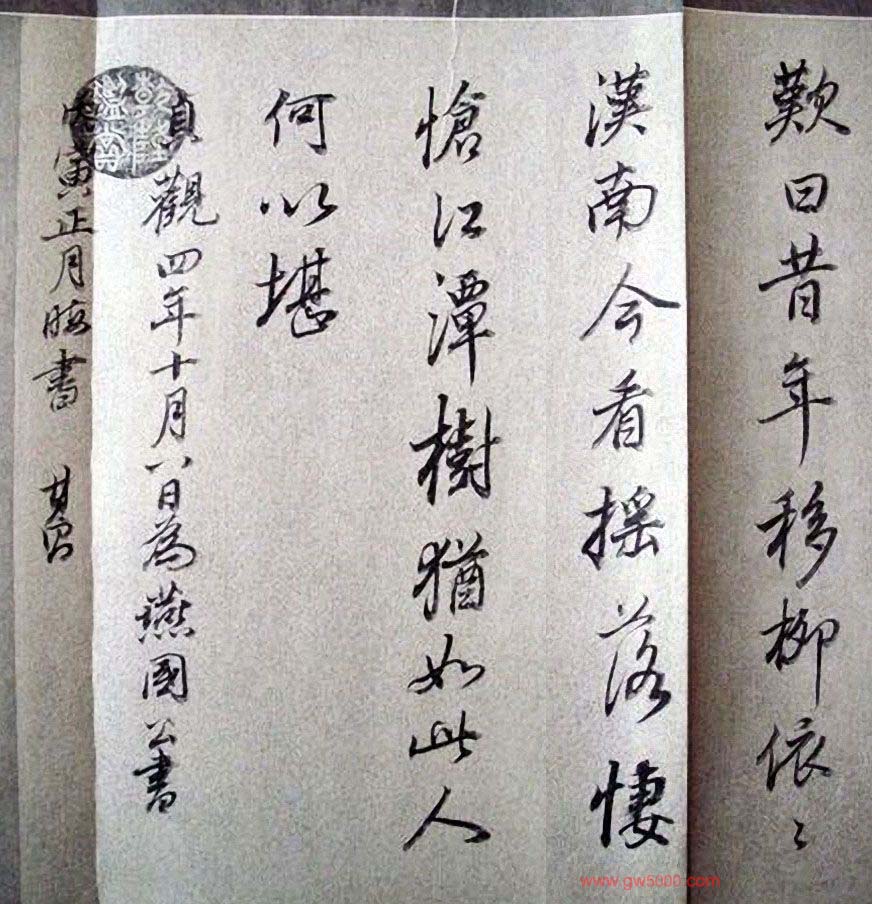 歎曰昔年移柳依〻
漢南今看搖落悽
愴江潭樹猶如此人
何以堪
貞觀四年十月八日為燕國公書
寅正月晦書
www.gw5000.com